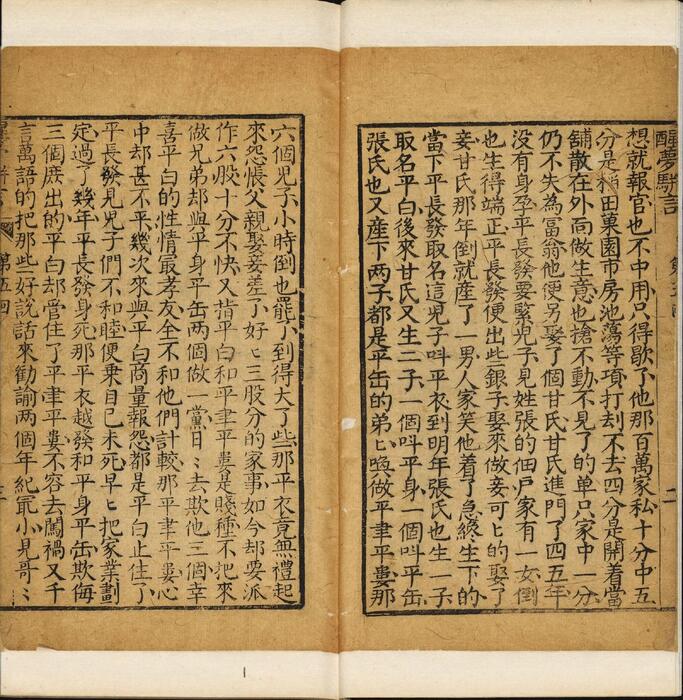 醒夢駢言
第五回
二
想就報官也不中用只得歇了他那百萬家私十分中五
分是稻田菓園市房池蕩等項打刦不去四分是開着當
舖散在外面做生意也搶不動不見了的单只家中一分
仍不失為冨翁他便另娶了個甘氏甘氏進門了四五年
没有身孕平長發要緊児子見姓張的佃戶家有一女倒
也生得端正平長發便出些銀子娶來做妾可ヒ的娶了
妾甘氏那年倒就產了一男人家笑他着了急終生下的
當下平長發取名這児子呌平衣到明年張氏也生一子
取名平白後來甘氏又生二子一個呌平身一個呌平缶
張氏也又產下两子都是平缶的弟ヒ喚做平聿平婁那
六個児子小時倒也罷了到得大了些那平衣竟無禮起
來怨悵父親娶妾差了好ヒ三股分的家事如今却要派
作六股十分不快又指平白和平聿平婁是賤種不把來
做兄弟却與平身平缶两個做一黨日ミ去欺他三個幸
喜平白的性情最孝友全不和他們計較那平聿平婁心
中却甚不平幾次來與平白商量報怨都是平白止住了
平長發見児子們不和睦便乗自己未死早ヒ把家業劃
定過了幾年平長發身死那平衣越發和平身平缶欺侮
三個庻出的平白却管住了平聿平婁不容去闖禍又千
言萬語的把那些好說話來勸諭两個年紀㝡小見哥ミ
第五回